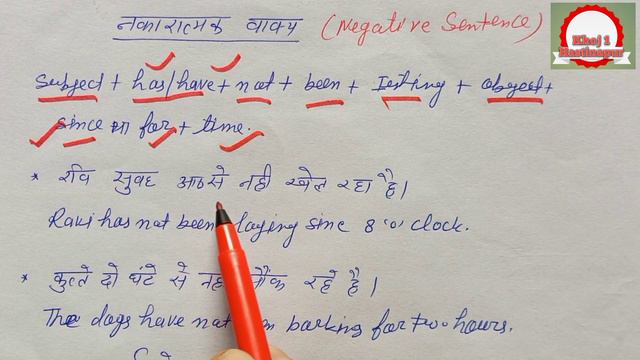 नकारात्मक वाक्य (Negative Sentence)
Khoj 1
Hastinapur
Subject + has/have + not + been + Iesting + object +
since या for + time.
* रवि सुवह आठ से नही खेल रहा है।
Ravi has not been laying sinc 8 'o' clock.
* कुत्ते दो घंटे से नह भौंक रहे है।
The dogs have not barking for two hours.